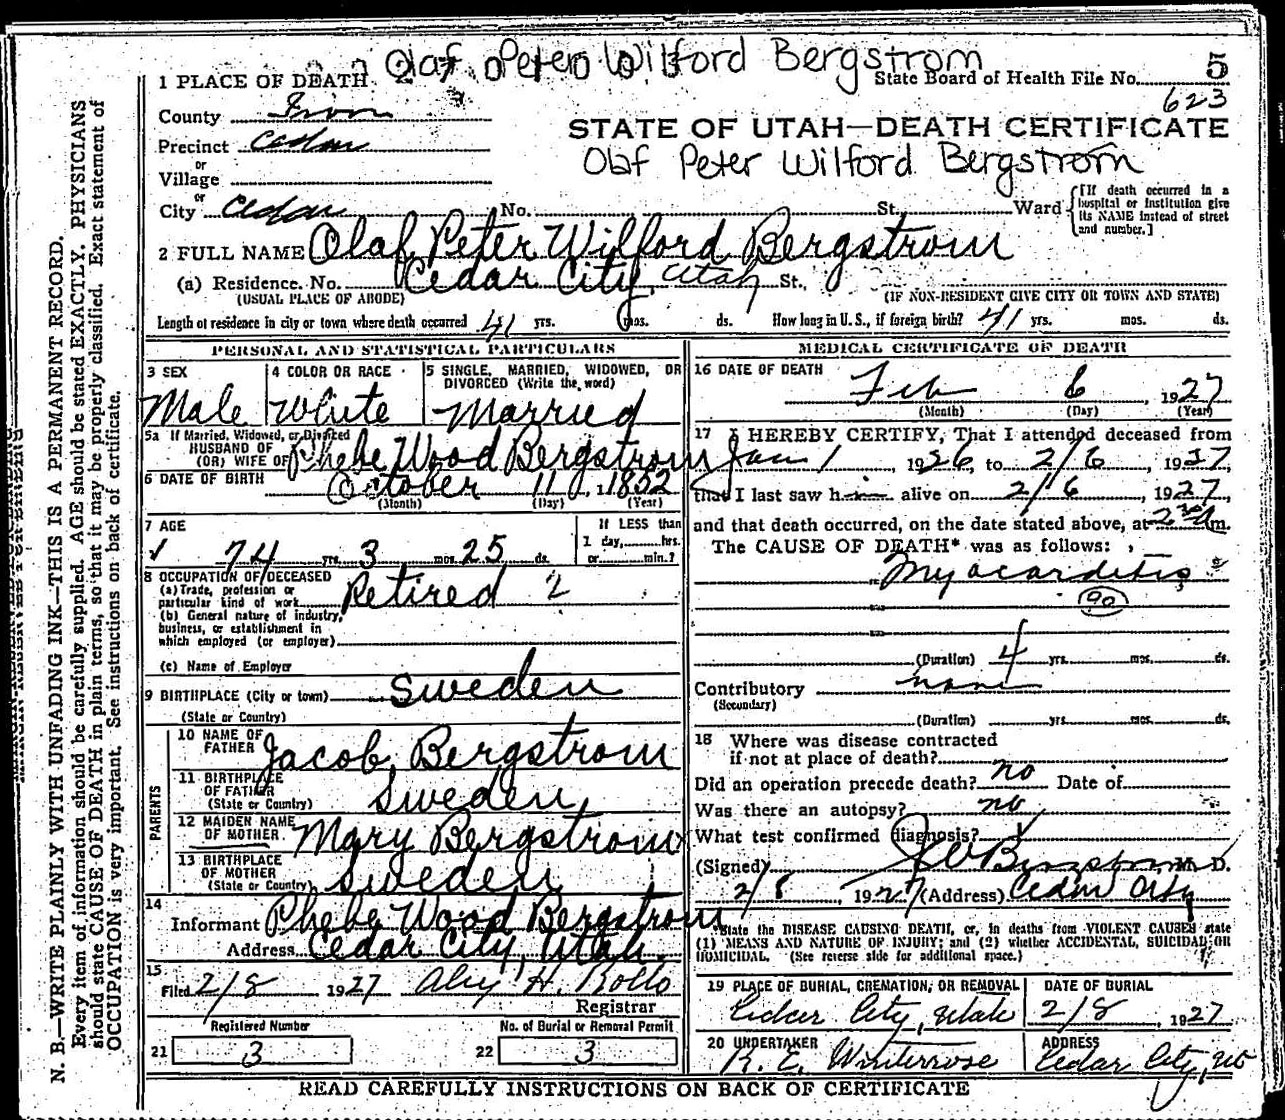 Olaf Peter Wilford Bergstrom
1 PLACE OF DEATH State Board of Health File No. 5
623
County Iron
STATE OF UTAH—DEATH CERTIFICATE
Precinct Cedar
Olaf Peter Wilford Bergstrom
or
Village
or
City Cedar No. St. Ward {[If death occurred in a hospital or institution give its NAME instead of street and number.]
2 FULL NAME Olaf Peter Wilford Bergstrom
(a) Residence. No. Cedar City, Utah St.,
(USUAL PLACE OF ABODE) (IF NON-RESIDENT GIVE CITY OR TOWN AND STATE)
Length of residence in city or town where death occurred 41 yrs. mos. ds. How long in U. S., if foreign birth? 41 yrs. mos. ds.
PERSONAL AND STATISTICAL PARTICULARS
3 SEX
Male
4 COLOR OR RACE
White
5 SINGLE, MARRIED, WIDOWED, OR
DIVORCED (Write the word)
Married
5a If Married, Widowed, or Divorced
HUSBAND OF
(OR) WIFE OF Phebe Wood Bergstrom
6 DATE OF BIRTH October 11, 1852
(Month) (Day) (Year)
7 AGE
74 yrs. 3 mos. 25 ds.
If LESS than
1 day, hrs.
or min.?
8 OCCUPATION OF DECEASED
(a) Trade, profession or
particular kind of work Retired 2
(b) General nature of industry,
business, or establishment in
which employed (or employer)
(c) Name of Employer
9 BIRTHPLACE (City or town) Sweden
(State or Country)
PARENTS
10 NAME OF
FATHER Jacob Bergstrom
11 BIRTHPLACE
OF FATHER
(State or Country) Sweden
12 MAIDEN NAME
OF MOTHER Mary Bergstrom
13 BIRTHPLACE
OF MOTHER
(State or Country) Sweden
14
Informant Phebe Wood Bergstrom
Address Cedar City, Utah.
15
Filed 2/8 1927 H. Rollo
Registrar
Registered Number
21 3
No. of Burial or Removal Permit
22 3
MEDICAL CERTIFICATE OF DEATH
16 DATE OF DEATH
Feb 6, 1927
(Month) (Day) (Year)
17 I HEREBY CERTIFY, That I attended deceased from
Jan 1 1926, to 2/6, 1927,
that I last saw him alive on 2/6, 1927,
and that death occurred, on the date stated above, at 2 30 a m.
The CAUSE OF DEATH* was as follows:
Myocarditis
90
(Duration) 4 yrs. mos. ds.
Contributory none
(Secondary)
(Duration) yrs. mos. ds.
18 Where was disease contracted
if not at place of death?
Did an operation precede death? no Date of
Was there an autopsy? no
What test confirmed diagnosis?
(Signed) Bergstrom M. D.
2/8, 1927 (Address) Cedar City
*State the DISEASE CAUSING DEATH, or, in deaths from VIOLENT CAUSES state
(1) MEANS AND NATURE OF INJURY; and (2) whether ACCIDENTAL, SUICIDAL, OR
HOMICIDAL. (See reverse side for additional space.)
19 PLACE OF BURIAL, CREMATION, OR REMOVAL
Cedar City, Utah
DATE OF BURIAL
2/8, 1927
20 UNDERTAKER
R. E. Winterrose
ADDRESS
Cedar City, Ut
READ CAREFULLY INSTRUCTIONS ON BACK OF CERTIFICATE
N. B.—WRITE PLAINLY WITH UNFADING INK—THIS IS A PERMANENT RECORD.
Every item of information should be carefully supplied. AGE should be stated EXACTLY. PHYSICIANS
should state CAUSE OF DEATH in plain terms, so that it may be properly classified. Exact statement of
OCCUPATION is very important. See instructions on back of certificate.